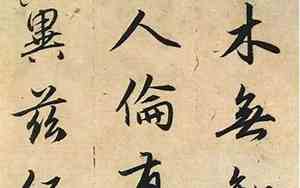 木無
人倫有
異茲